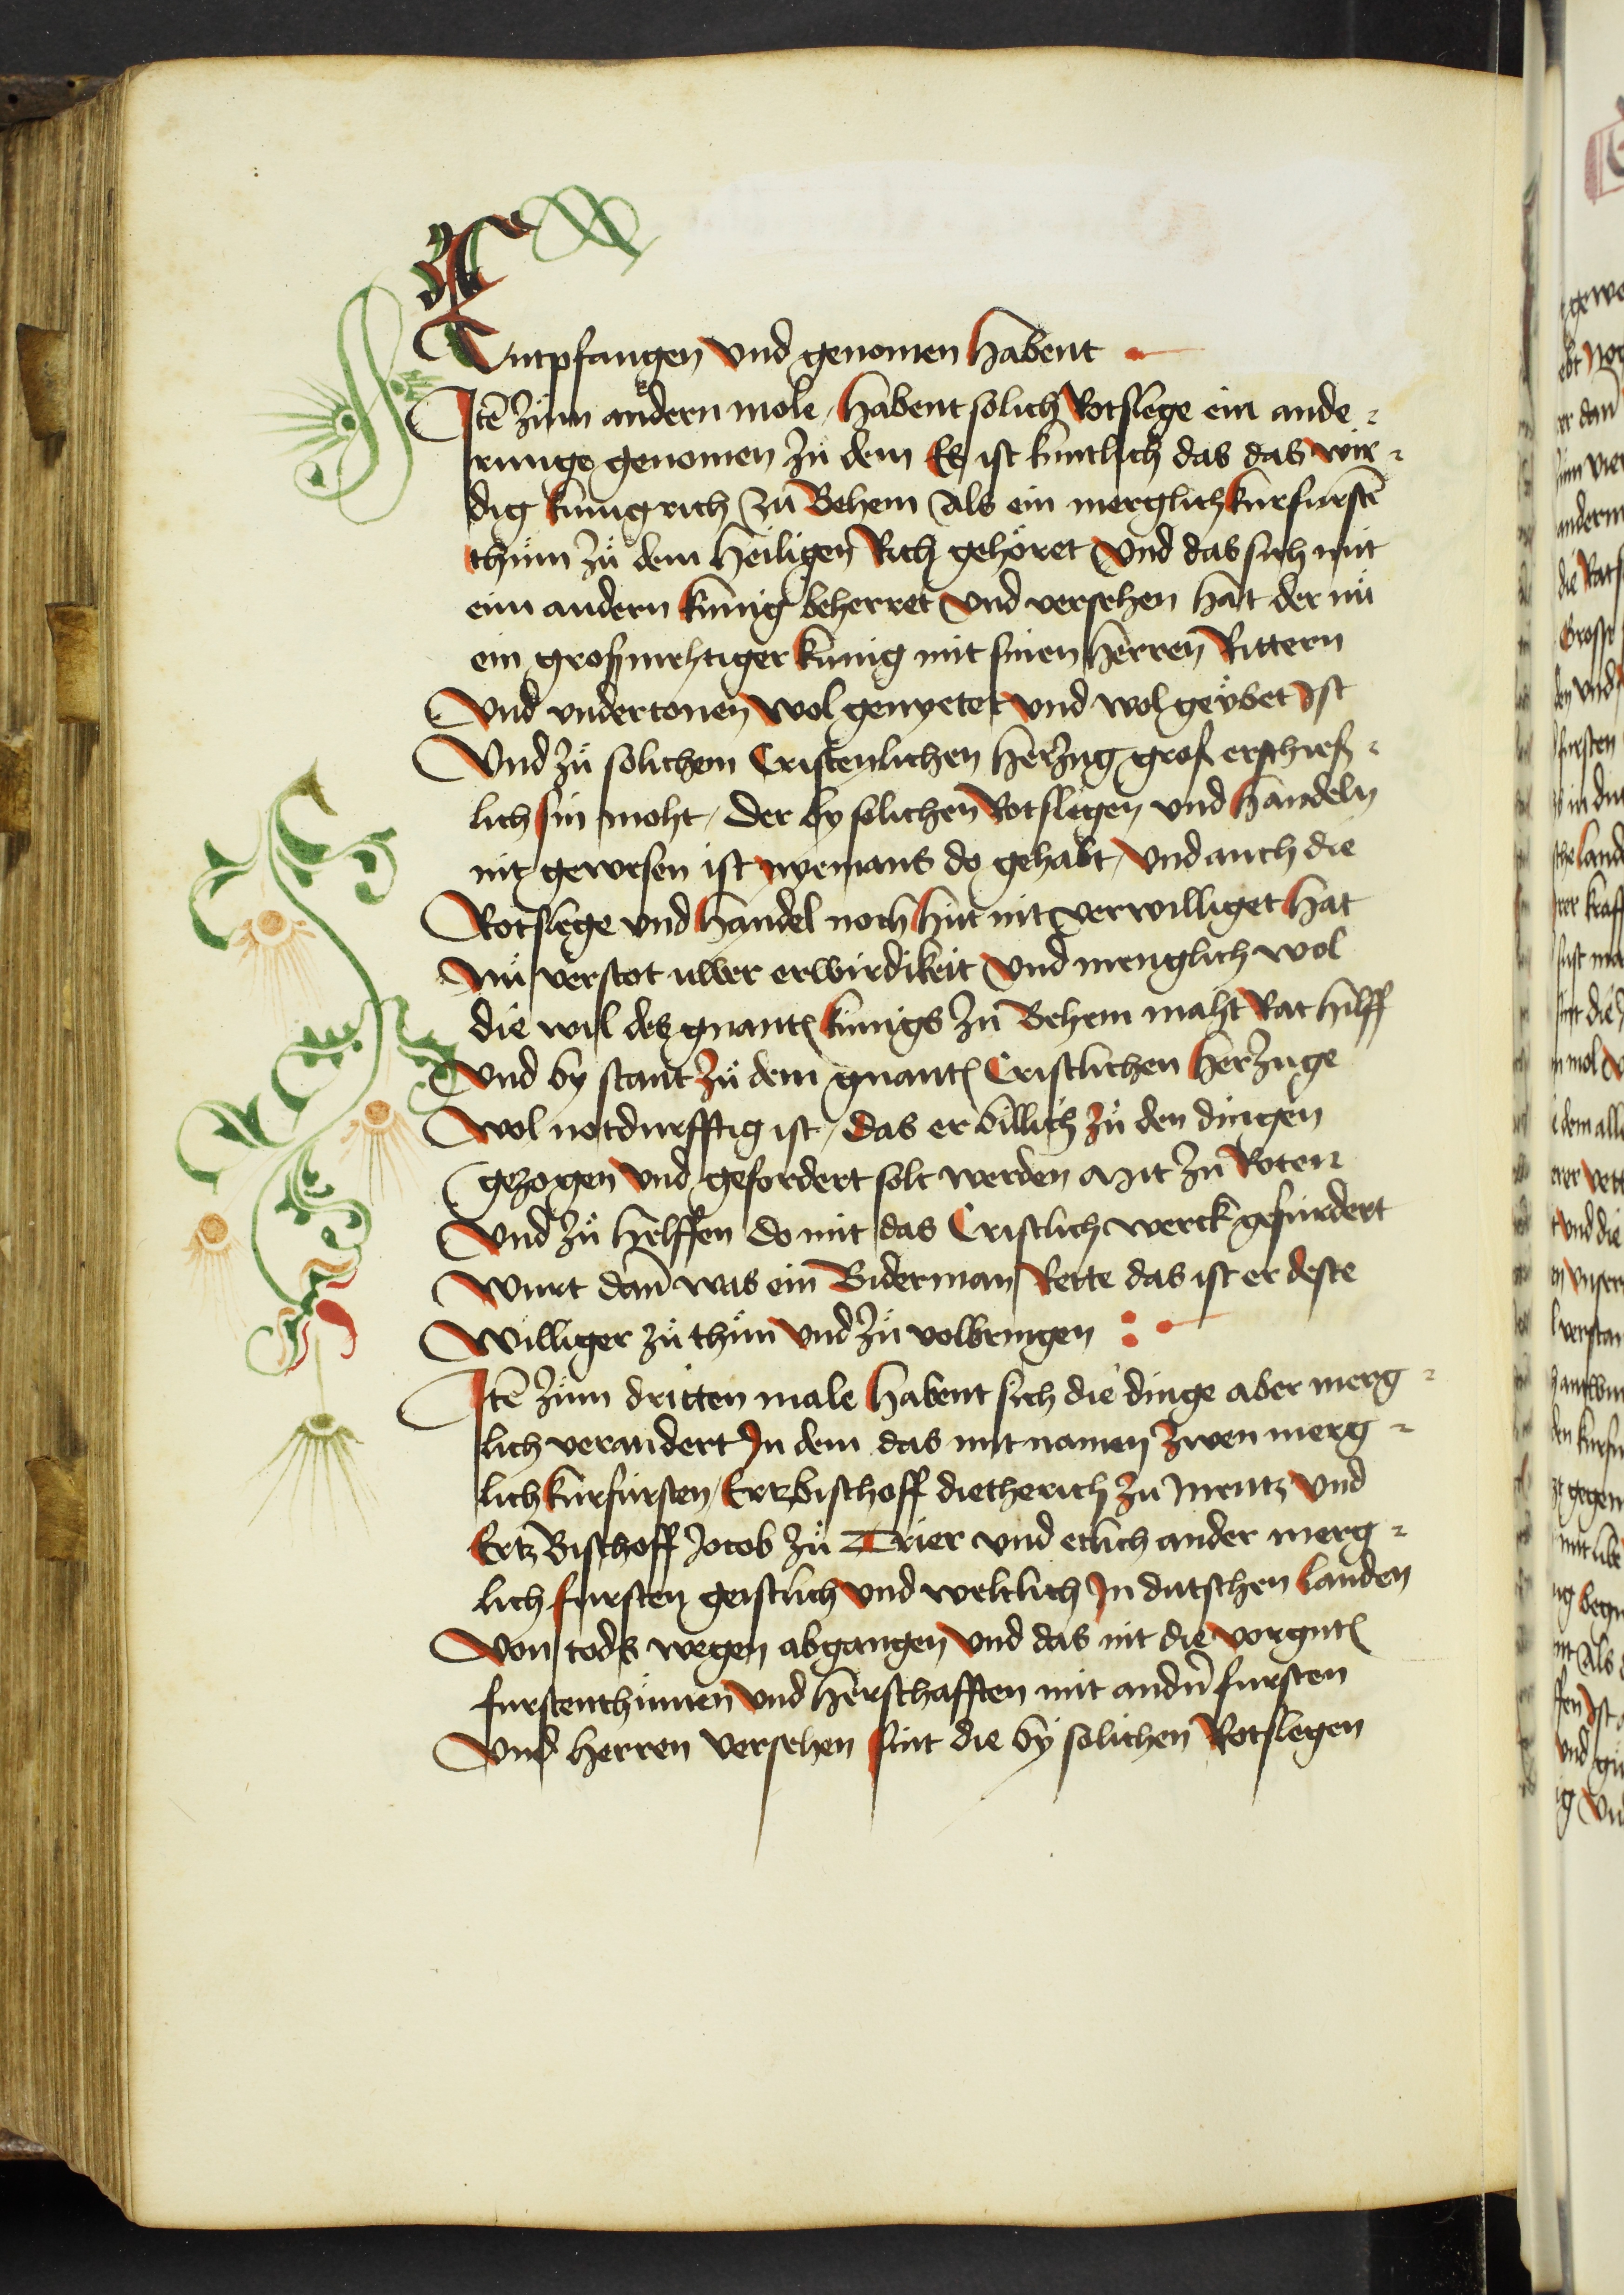 Entpfangen vnd genomen habent
Itē zům andern mole habent solich Rotslege ein ande⸗
runge genomen zů dem Es ist kuntlich das das wir⸗
dig kunigrich zů Behem Als ein merglich kurfurstē
thům zů dem heiligen Rich gehöret vnd das sich mit
eim andern kunig beherret vnd versehen hat der nů
ein großmehtiger kunig mit sinen herren Rittern
Vnd vndertonen wol genyetet vnd wol geübet Ist
Vnd zů solichem Cristenlichen herzug groß erschieß⸗
lich sin moht / der by solichen Rotslegen vnd handeln
nit gewesen ist nyemans do gehabt / vnd auch die
Rotslege vnd handel noch hut nit verwilliget hat
Nů verstot uwer erwirdikeit vnd menglich wol
die wil des gnantē kunigs zů Behem maht Rat hilff
Vnd by stant zů dem gnantē Cristlichen herzuge
Wol notdurfftig ist / das er billich zů den dingen
gezogen vnd gefordert solt werden Mit zů Roten
Vnd zů helffen do mit das Cristlich werck gefurdert
Wurt dañ was ein Biderman Rette das ist er deste
Williger zů thům vnd zů volbringen
Itē zům dritten male habent sich die dinge aber merg⸗
lich verandert In dem das mit namen zwen merg⸗
lich kurfursten / Ertzbischoff dietherich zů Mentz vnd
Ertz Bischoff Jocob zů Trier vnd etlich ander merg⸗
lich fursten geistlich vnd weltlich In dutschen Landen
Von tods wegen abgangen vnd das nit die vorgntē
furstenthumen vnd herschafften mit andn̄ fursten
Vnd herren versehen sint die by solichen Rotslegen